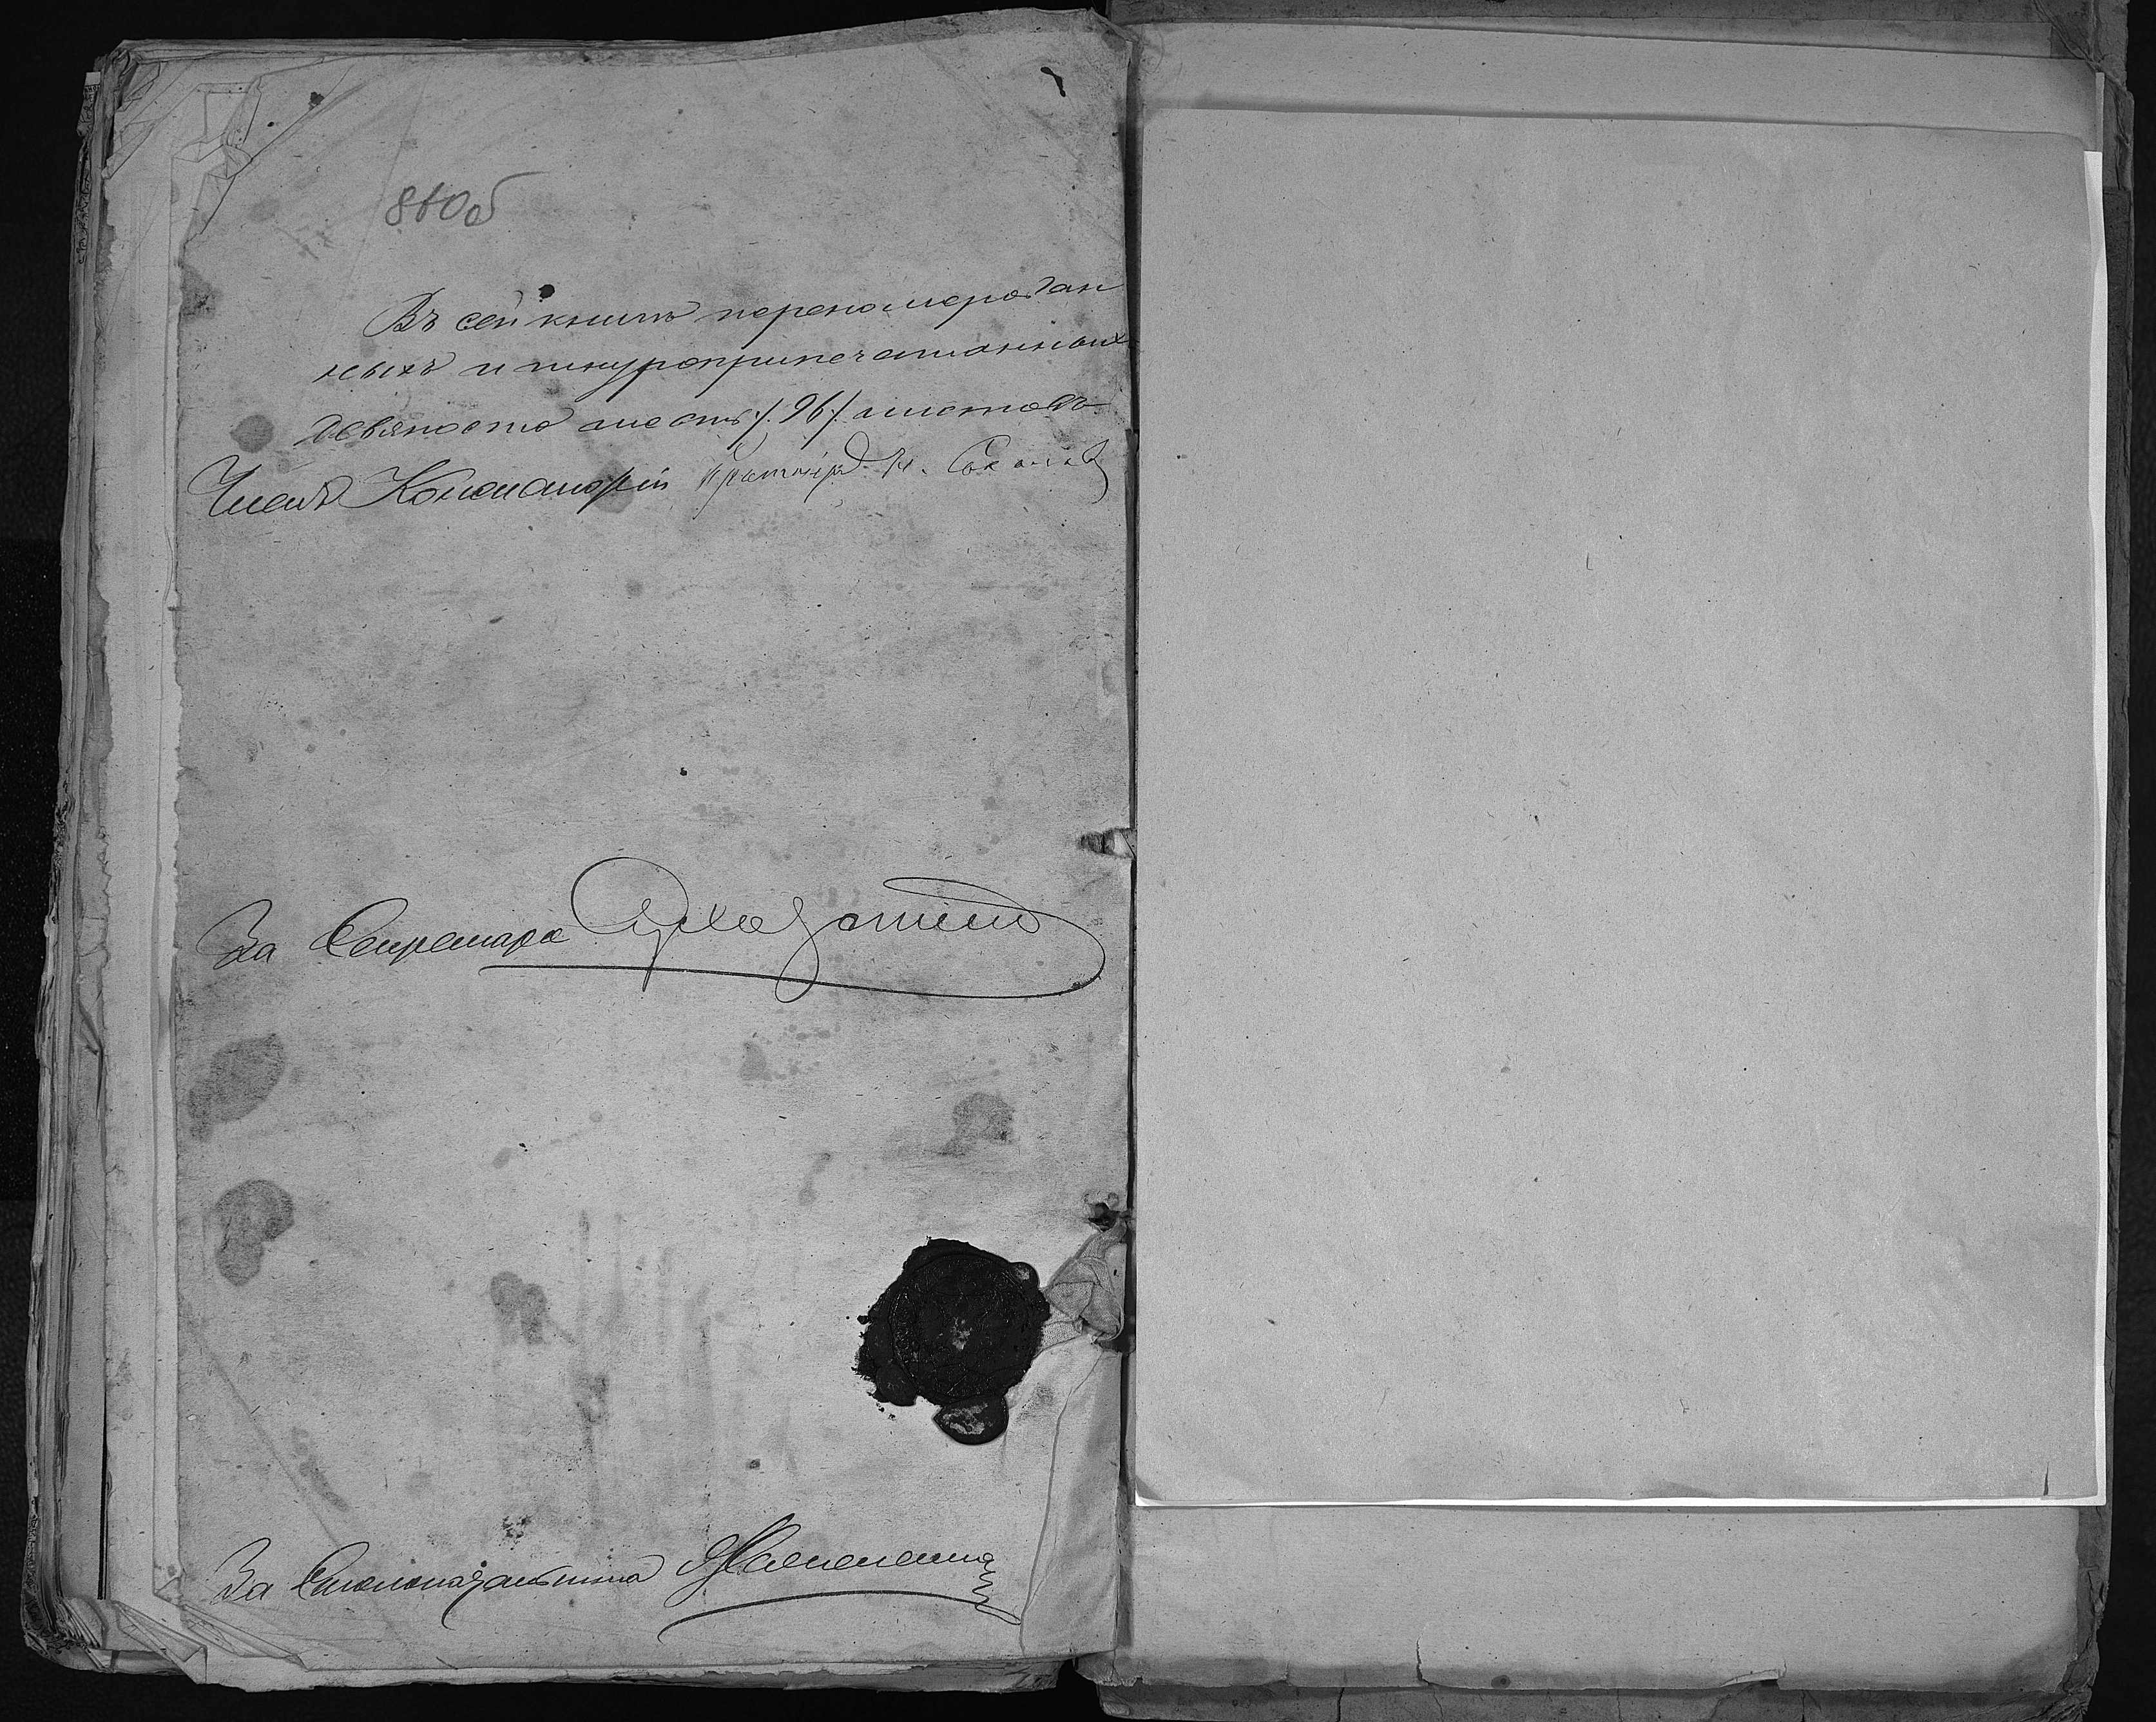 810об
Въ сей книгѣ переномерован
ныхъ и шнуроприпечатанныхъ
девяносто шесть /. 96 /. листовъ
Членъ Консисторіи Протоіерей Н. Соколовъ
За Секретаря
За Столоначальника